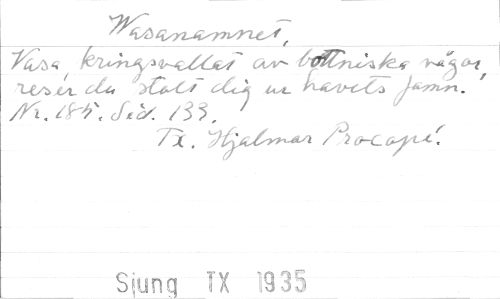 Wasanamnet,
Vasa, kringsvallat av bottniska vågor,
reser du stolt dig ur havets famn.
Nr. 185. Sid. 133.
Tx. Hjalmar Procopé.
Sjung TX 1935